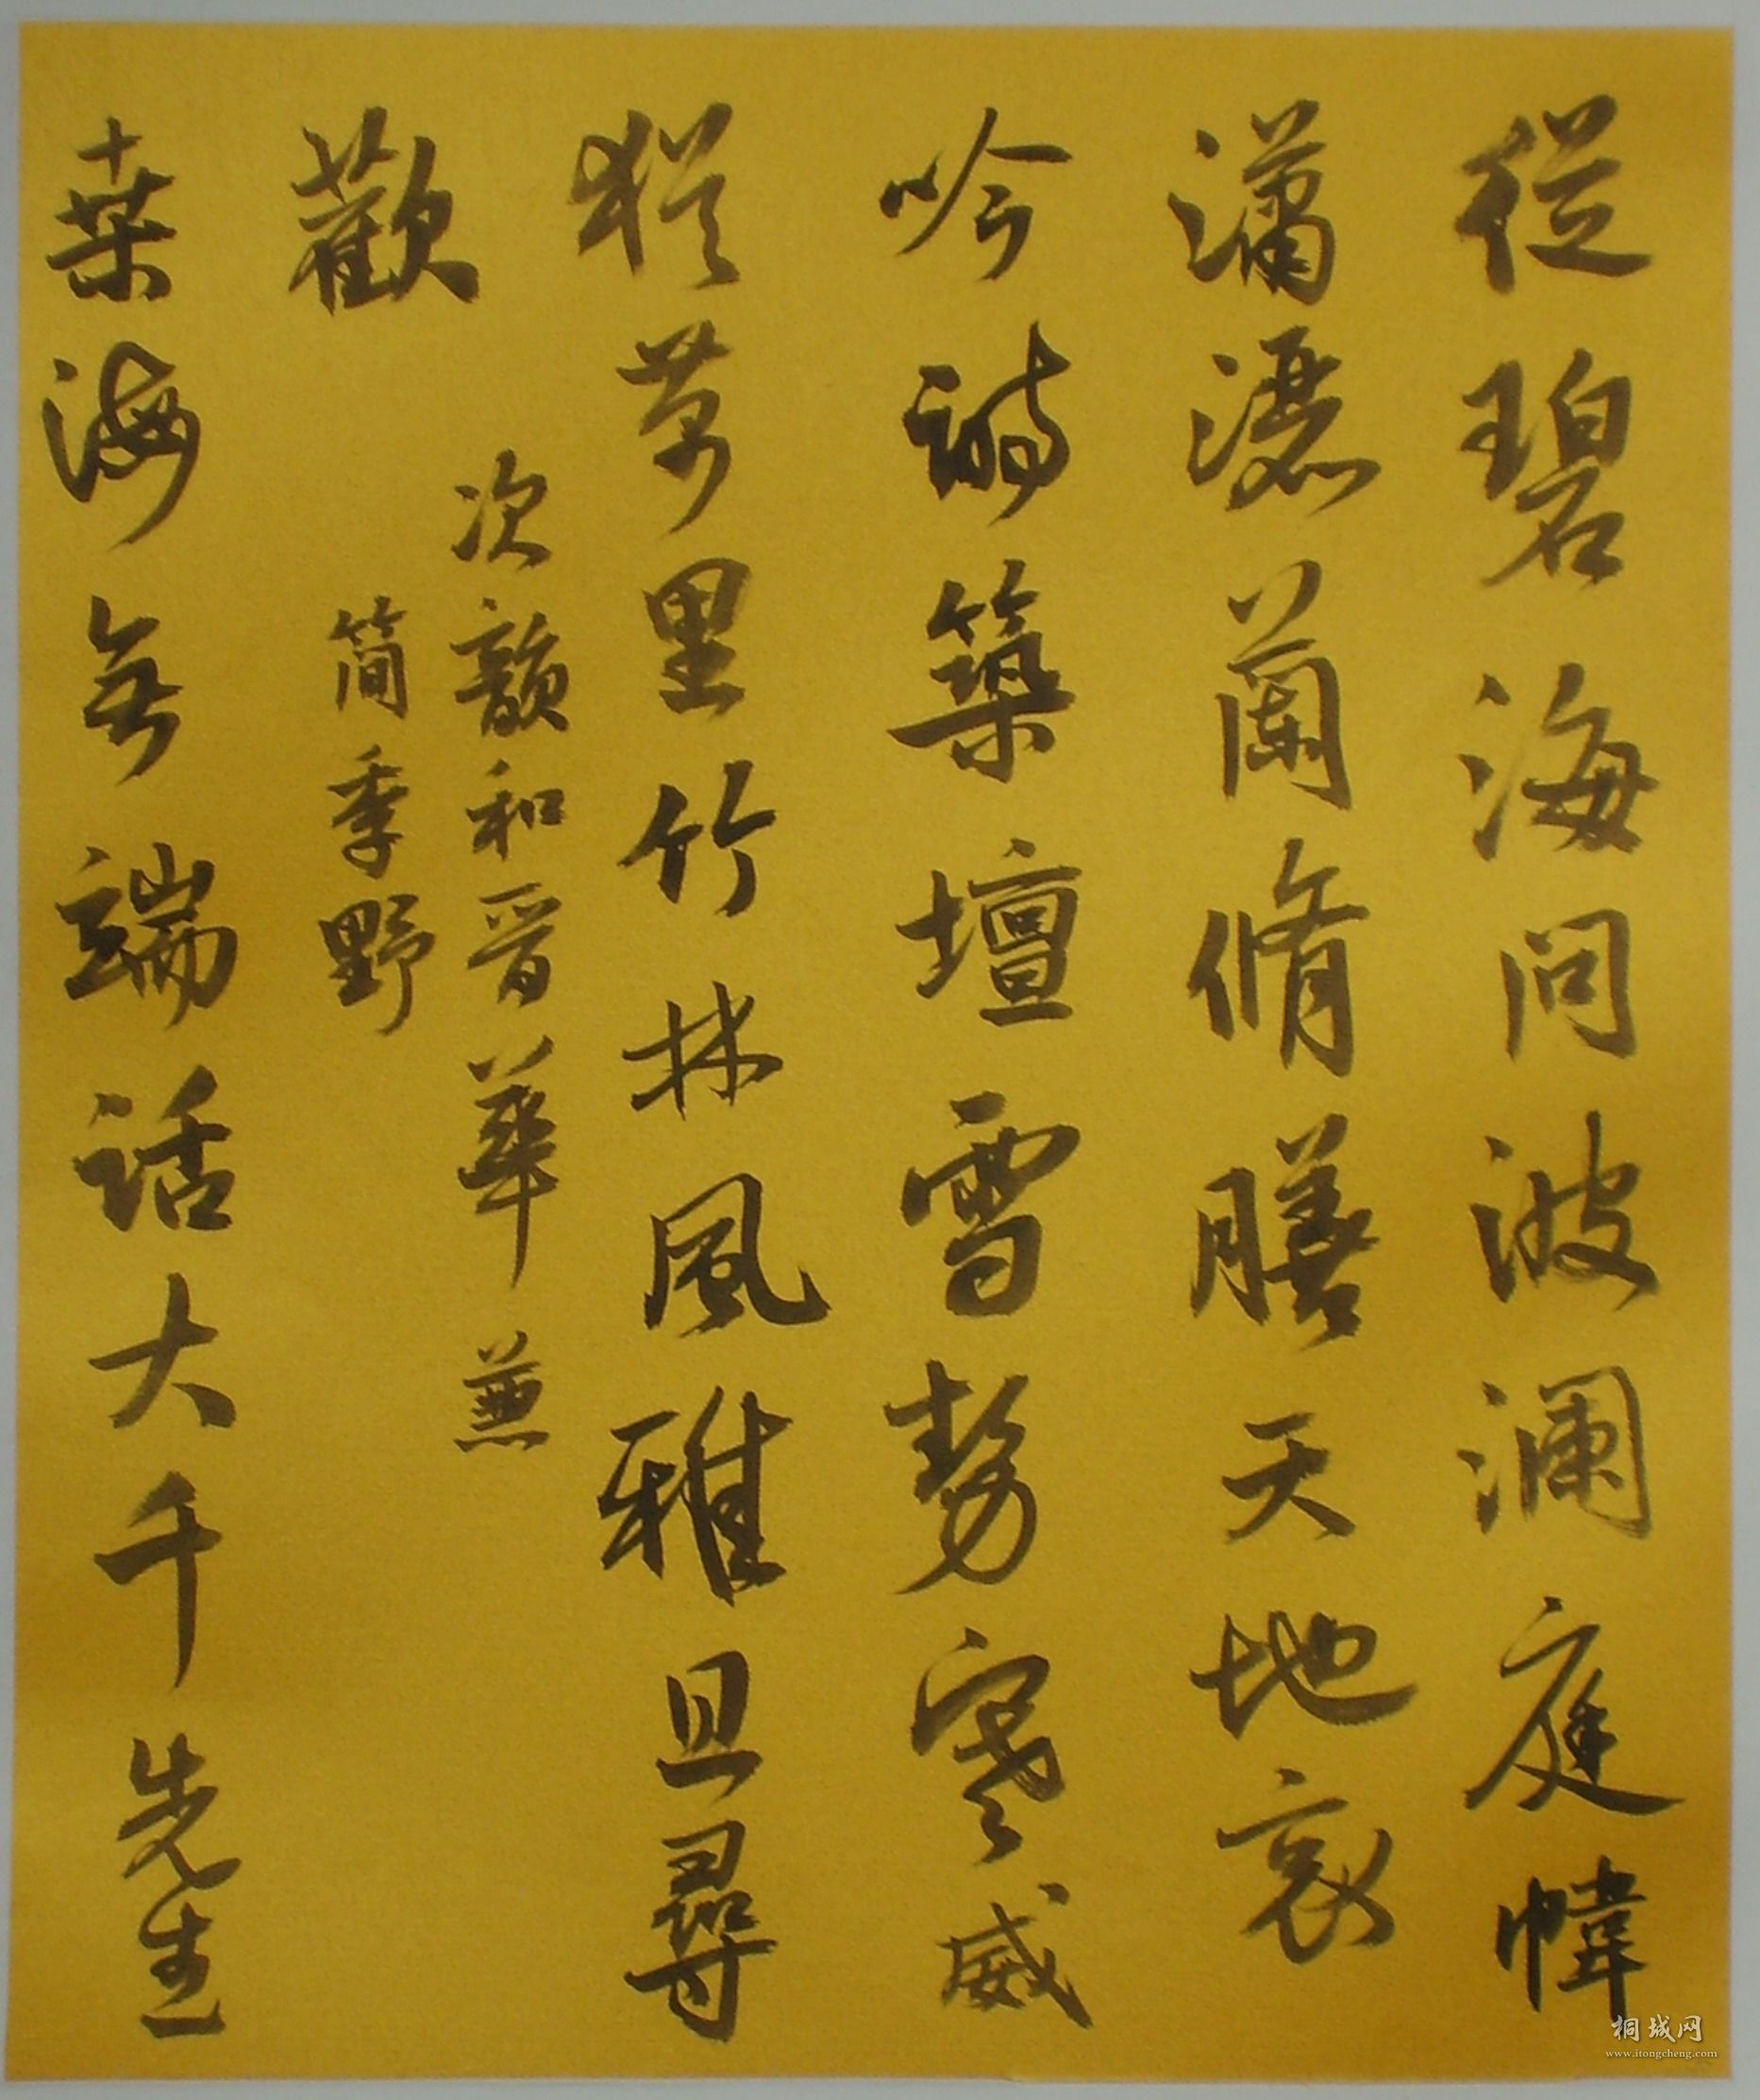 從碧海问波澜庭幃
瀟灑蘭脩膳天地哀
吟詩築壇雪勢寒威
猶萬里竹林風雅且尋
歡
次韻和晋華兼
简季野
桑海無端話大千先生
桐城网
www.itongcheng.com